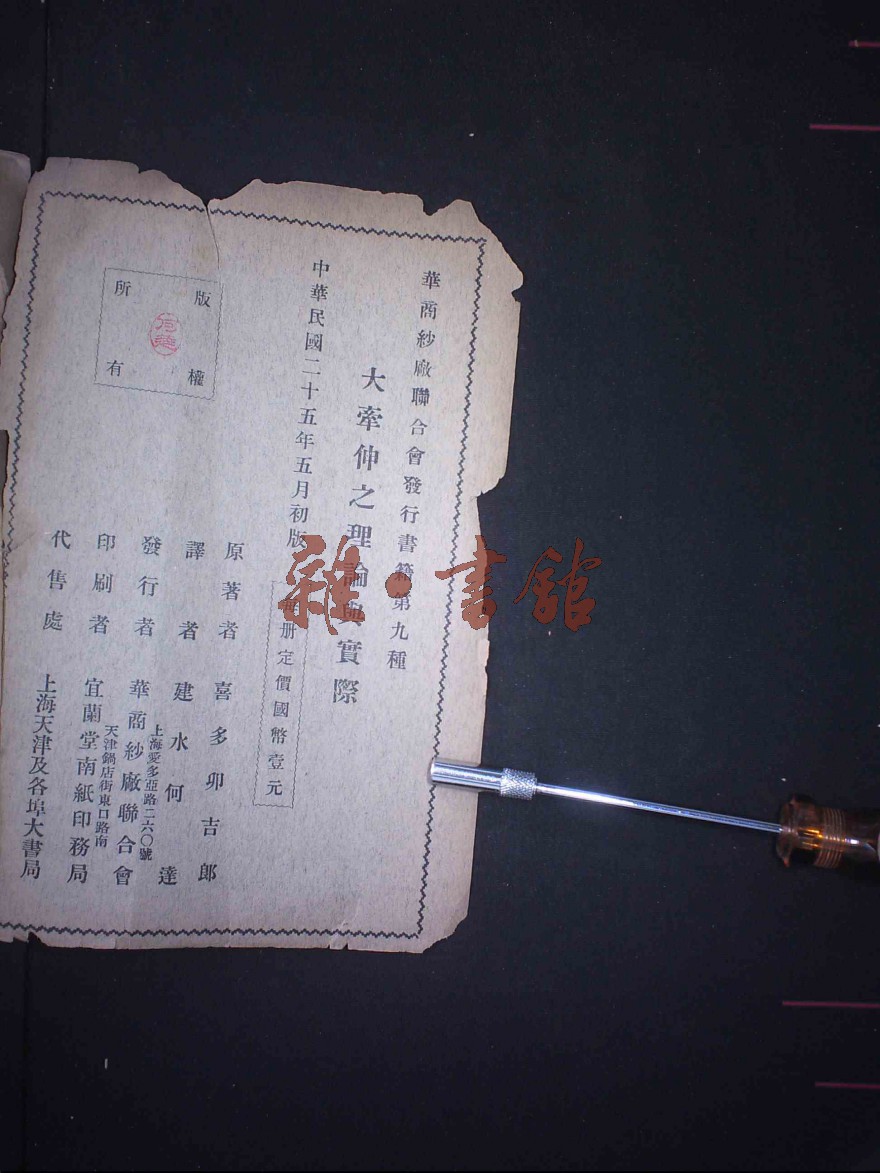 華商紗廠聯合會發行書籍第九種
大牽伸之理論與實際
中華民國二十五年五月初版
每册定價國幣壹元
版權
所有
原著者 喜多卯吉郎
譯者 建水何達
發行者 華商紗廠聯合會
上海愛多亞路二六〇號
印刷者 宜蘭堂南紙印務局
天津鍋店街東口路南
代售處 上海天津及各埠大書局
何達
雜·書館